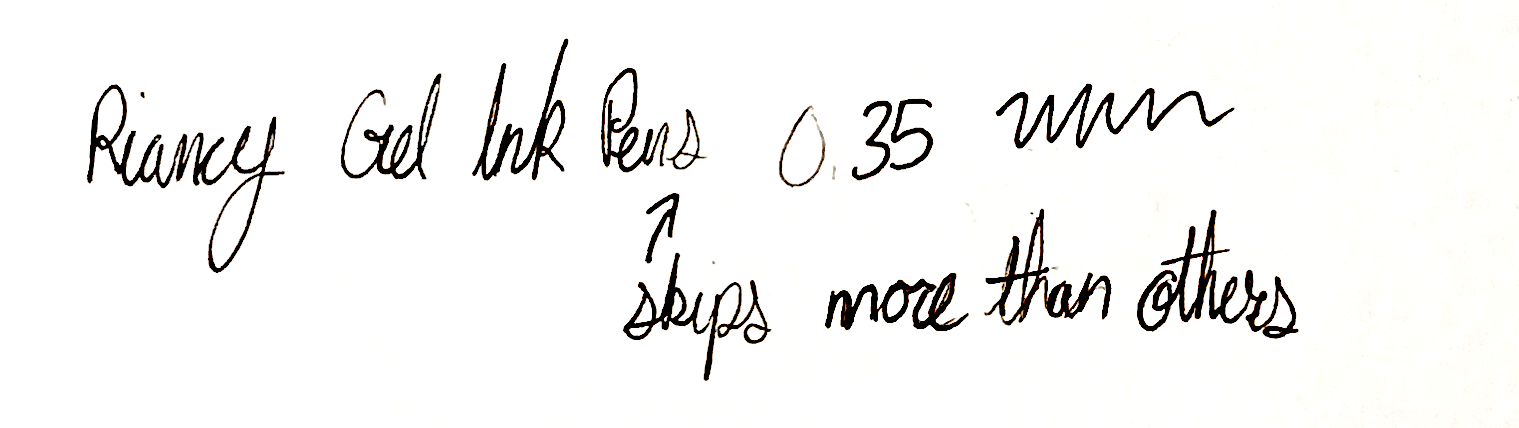 Riancy Gel Ink Pens 0.35
↑
skips more than others